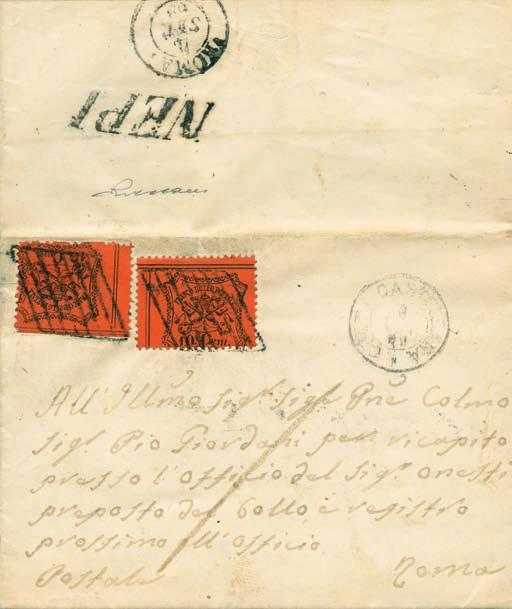 ROMA
SET
NEPI
10 Cent
CAS
All' Illmo Sigr Sigr Pne Colmo
Sigr Pio Giordani per ricapito
presso l'officio del Sigr onesti
preposto del bollo e registro
prossimo all'officio
Postale Roma